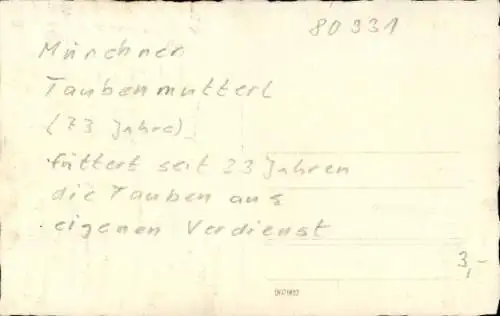 80931
Münchner
Taubenmutterl
(73 Jahre)
füttert seit 23 Jahren
die Tauben aus
eigenen Verdienst
3,-